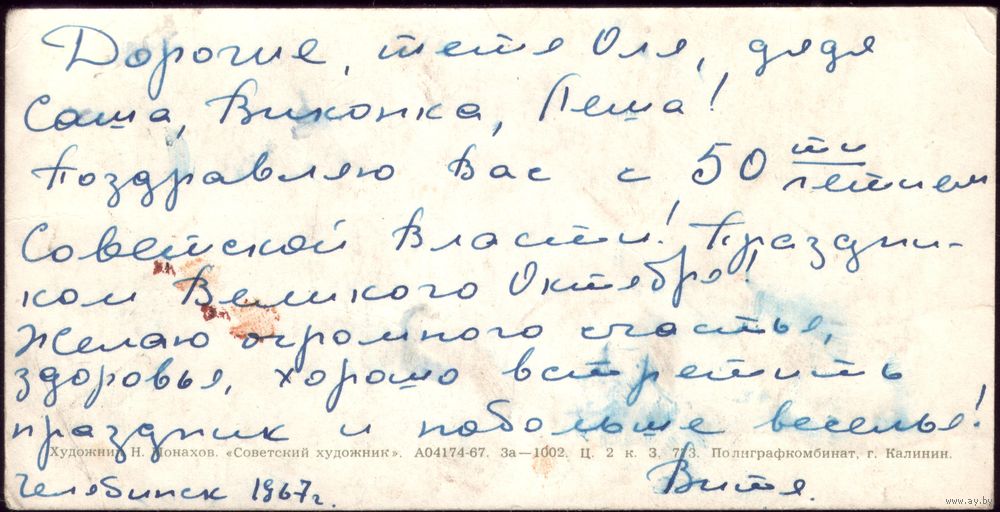 Дорогие, тетя Оля, дядя
Саша, Виконка, Леша!
Поздравляю Вас с 50 ти
летием
Советской Власти! Праздни-
ком Великого Октября!
Желаю огромного счастья,
здоровья, хорошо встретить
праздник и побольше веселья!
Художник Н. Монахов. «Советский художник». А04174-67. За—1002. Ц. 2 к. З. 773. Полиграфкомбинат, г. Калинин.
Челябинск 1967г. Витя.
www.ay.by